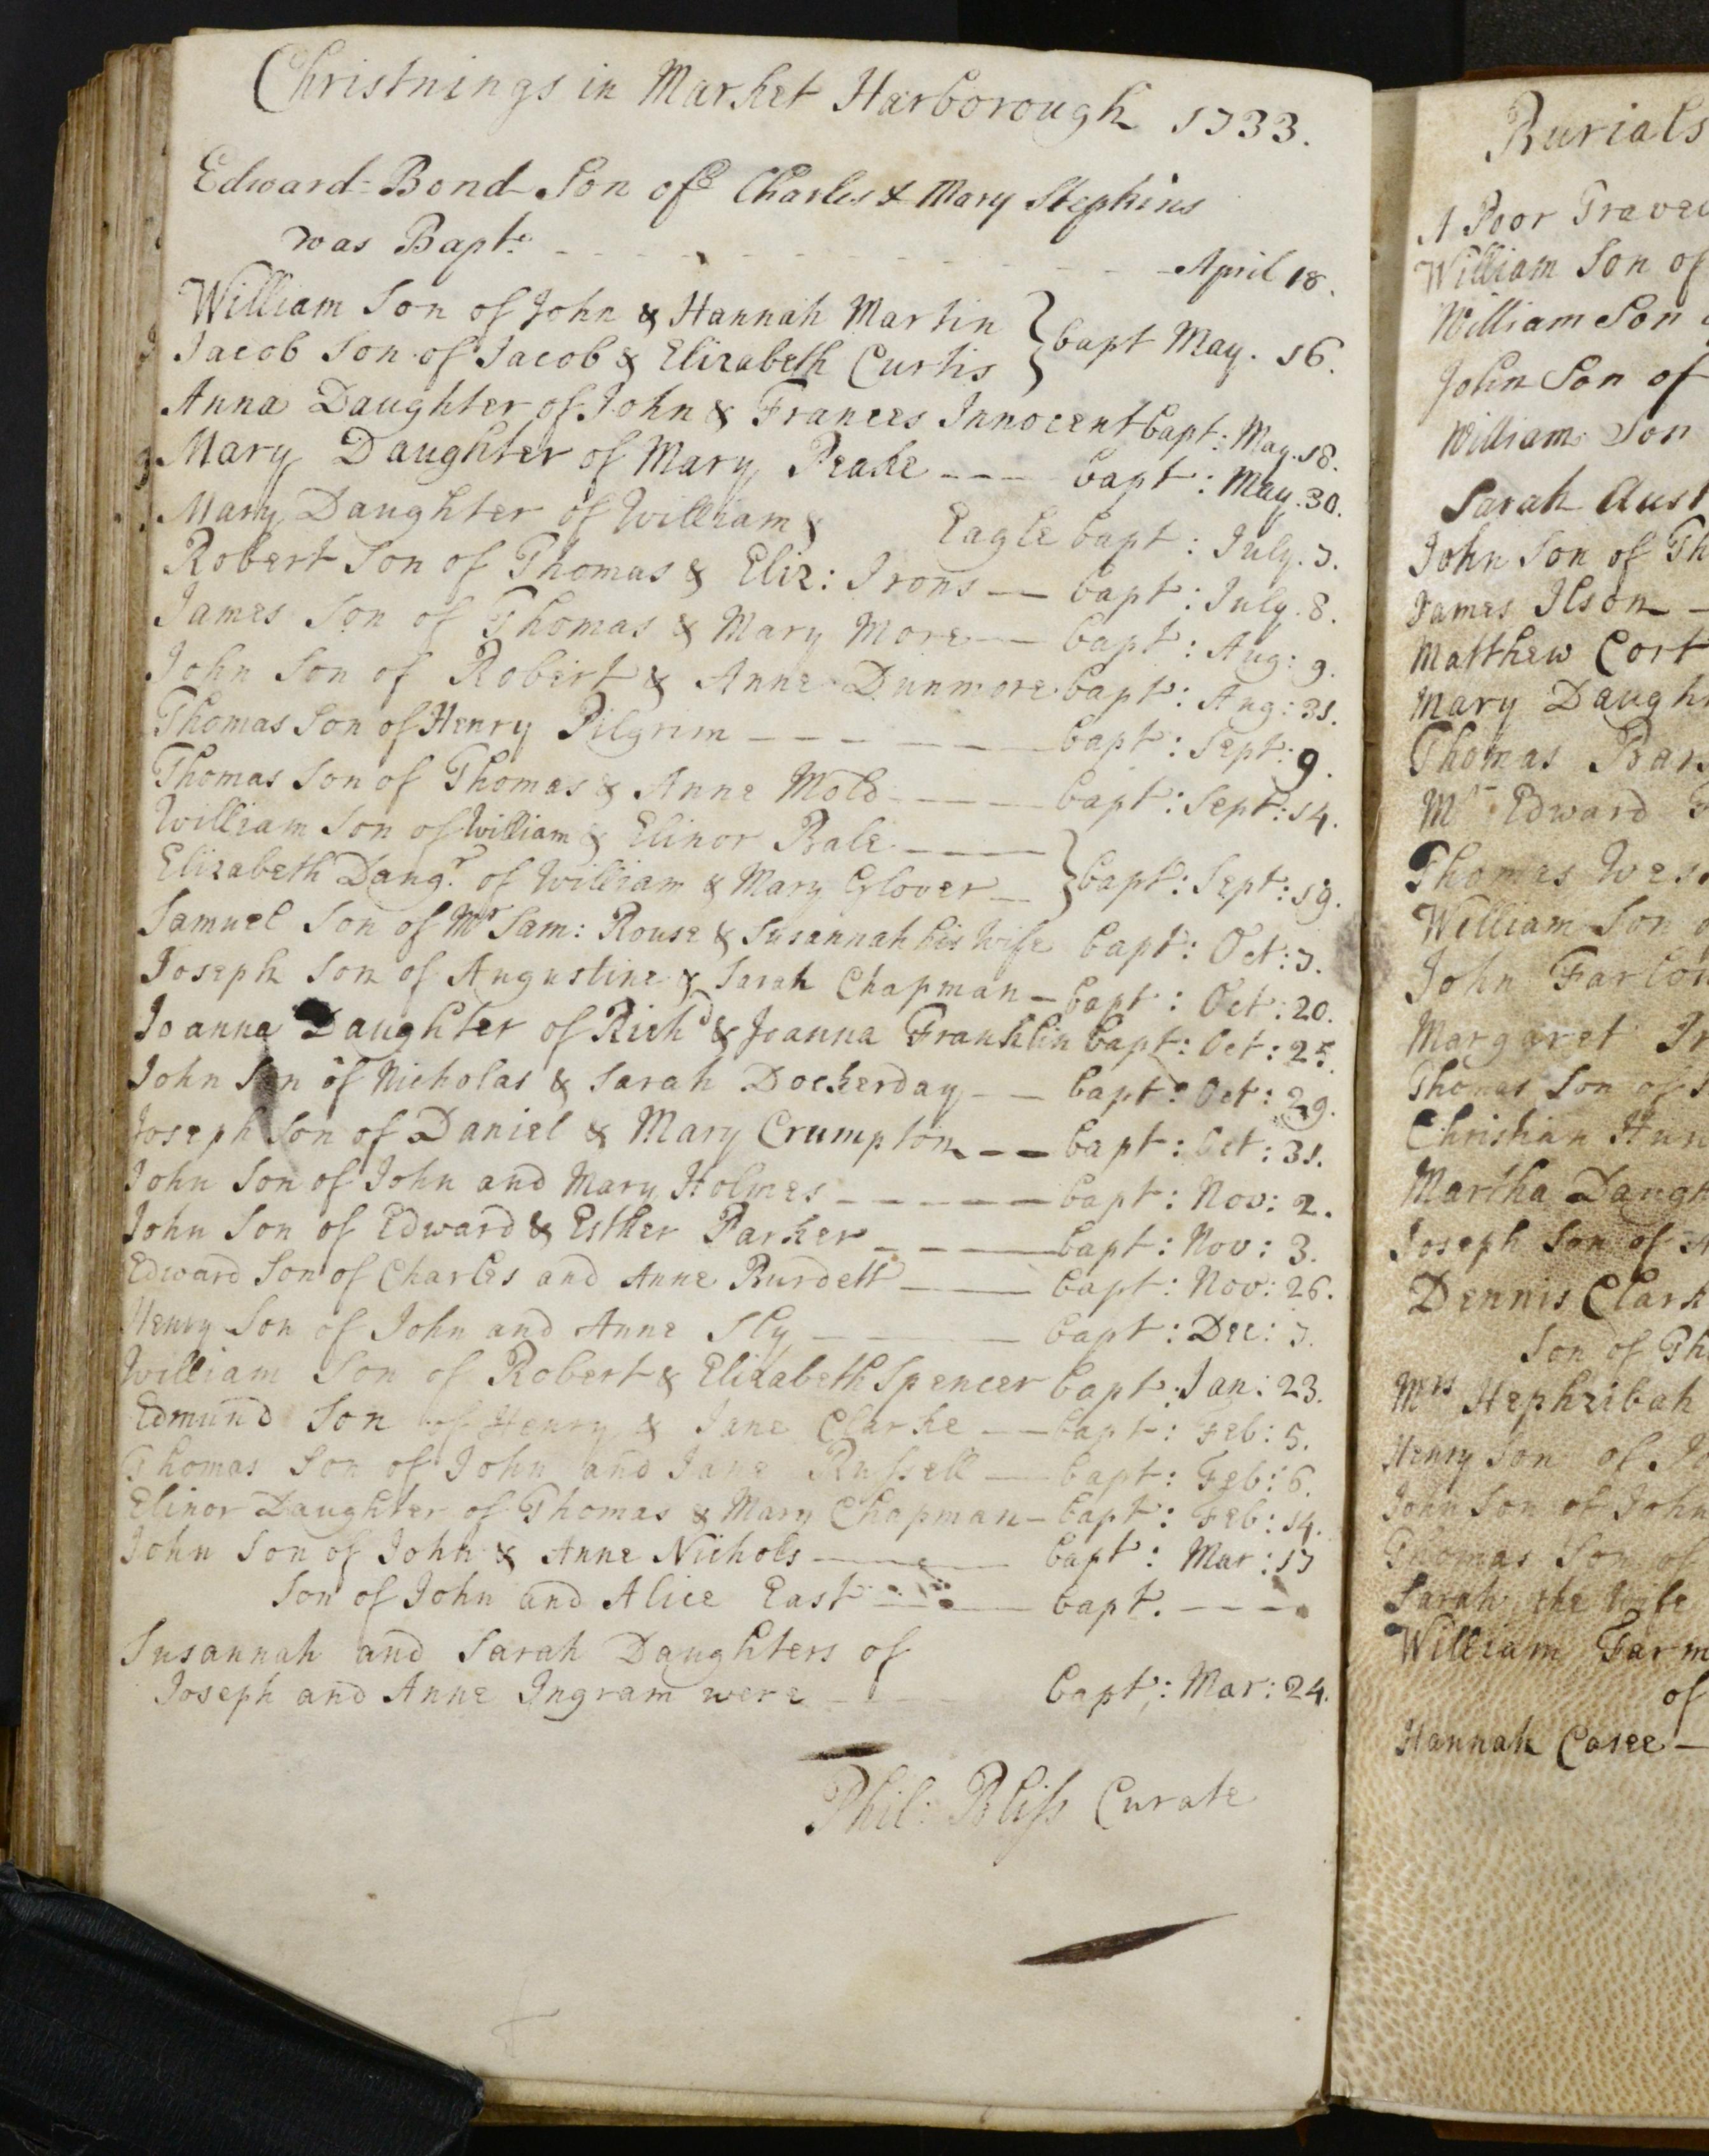 Christnings in Market Harborough 1733.
Edward-Bond Son of Charles & Mary Stephins
was Bapt: April 18.
William Son of John & Hannah Martin
Jacob Son of Jacob & Elizabeth Curtis } bapt May. 16.
Anna Daughter of John & Frances Innocent bapt: May. 18.
Mary Daughter of Mary Peake --- bapt: May. 30.
Mary Daughter of William & Eagle bapt: July. 7.
Robert Son of Thomas & Eliz: Irons -- bapt: July. 8.
James Son of Thomas & Mary More -- bapt: Aug: 9.
John Son of Robert & Anne Dunmore bapt: Aug: 31.
Thomas Son of Henry Pilgrim ------ bapt: Sept: 9.
Thomas Son of Thomas & Anne Mold ---- bapt: Sept: 14.
William Son of William & Elinor Bale ----
Elizabeth Daugr. of William & Mary Glover -- } bapt: Sept: 19.
Samuel Son of Mr Sam: Rouse & Susannah his Wife bapt: Oct: 7.
Joseph Son of Augustine & Sarah Chapman - bapt: Oct: 20.
Joanna Daughter of Richd & Joanna Franklin bapt: Oct: 25.
John Son of Nicholas & Sarah Dockerday -- bapt: Oct: 29.
Joseph Son of Daniel & Mary Crumpton -- bapt: Oct: 31.
John Son of John and Mary Holmes ----- bapt: Nov: 2.
John Son of Edward & Esther Parker ---- bapt: Nov: 3.
Edward Son of Charles and Anne Burdett --- bapt: Nov: 26.
Henry Son of John and Anne Sly ---- bapt: Dec: 7.
William Son of Robert & Elizabeth Spencer bapt: Jan: 23.
Edmund Son of Henry & Jane Clarke -- bapt: Feb: 5.
Thomas Son of John and Jane Russell -- bapt: Feb: 6.
Elinor Daughter of Thomas & Mary Chapman - bapt: Feb: 14.
John Son of John & Anne Nichols ---- bapt: Mar: 17
Son of John and Alice East ---- bapt. ----
Susannah and Sarah Daughters of
Joseph and Anne Ingram were bapt: Mar: 24.
Phil: Bliss Curate
Burials
A Poor
William Son of
William Son
John Son of
William Son
Sarah
John Son of
James Ilson -
Matthew Cort
Mary
Thomas
Mr Edward
Thomas
William Son
John
Margaret
Thomas Son of
Christian
Martha
Joseph Son of
Dennis Clark
Son of
Mrs Hephzibah
Henry Son of
John Son of John
Thomas Son of
Sarah the Wife
William
of
Hannah Casee -